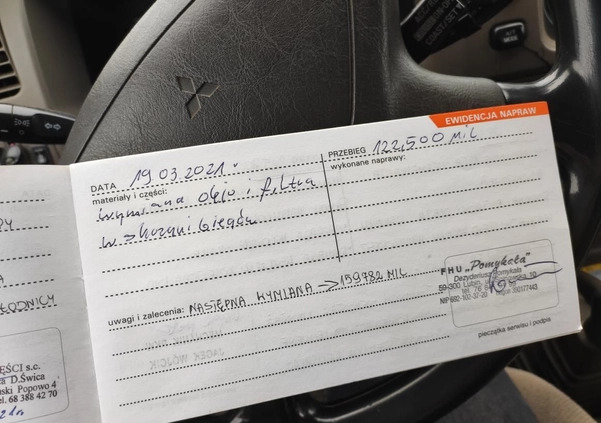 EWIDENCJA NAPRAW
DATA 19.03.2021r
PRZEBIEG 122,500 MIL
materiały i części:
wykonane naprawy:
wymiana oleju i filtra
w skrzyni biegów
uwagi i zalecenia: NASTĘPNA WYMIANA → 159782 MIL
FHU „Pomykała”
Dezyderiusz Pomykała
59-300 Lubin
pieczątka serwisu i podpis
ŁODNICY
ĘŚCI s.c.
a D.Świca
ński Popowo 4
el. 68 388 42 70
21r
AUTO
MODE